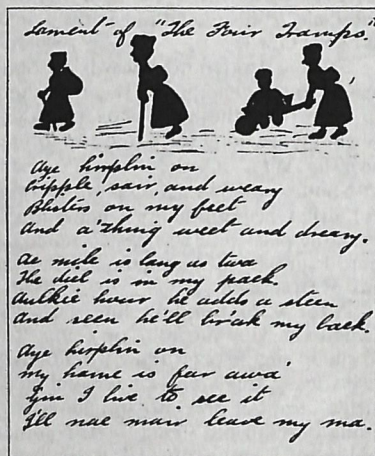 Lament of "The Four Tramps."
Aye hirplin on
Cripple, sair, and weary
Blisters on my feet
And a'thing weet and dreary.
Ae mile is lang as twa
The deil is in my pack.
Ilkie hour he adds a steen
And seen he'll br'ak my back.
Aye hirplin on
My hame is far awa'
Gin I live to see it
I'll nae mair leave my ma.